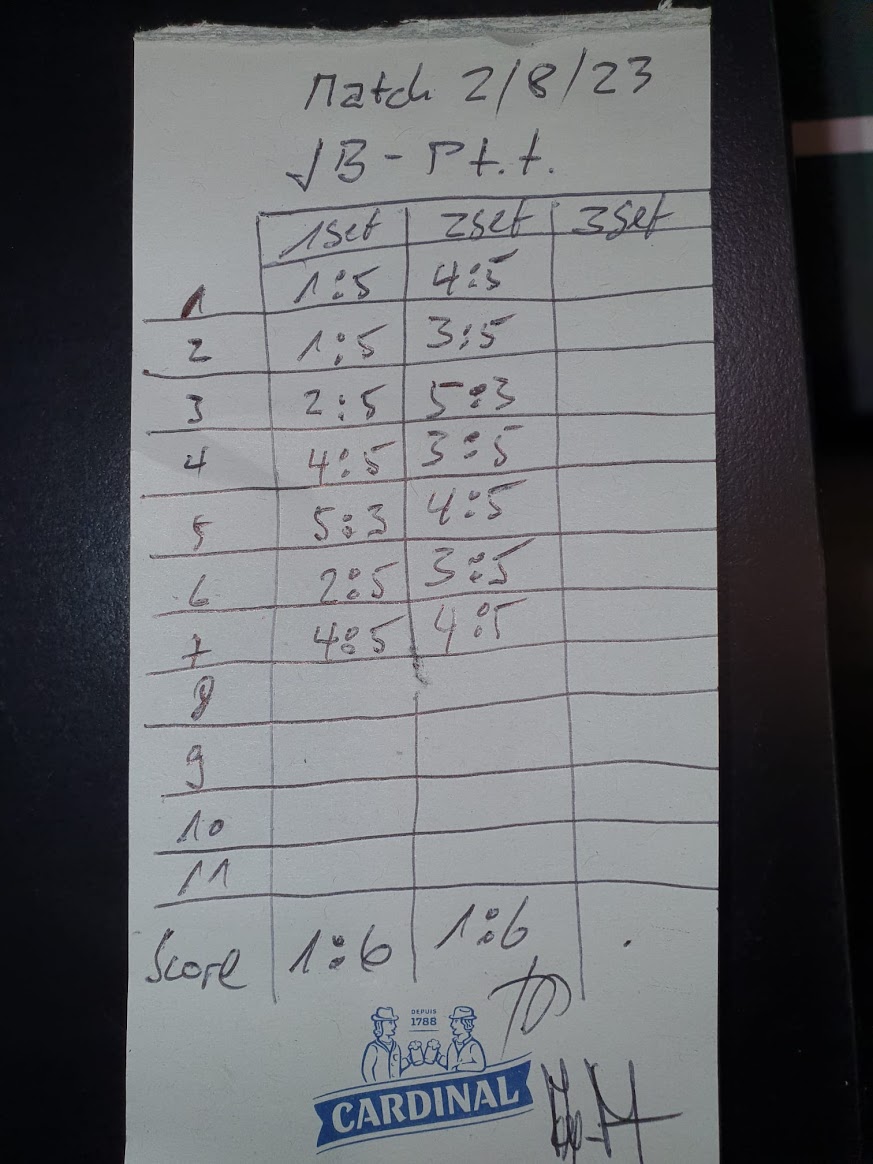 Match 2/8/23
JB - Pt.t.
1set 2set 3set
1 1:5 4:5
2 1:5 3:5
3 2:5 5:3
4 4:5 3:5
5 5:3 4:5
6 2:5 3:5
7 4:5 4:5
8
9
10
11
Score 1:6 1:6
DEPUIS
1788
CARDINAL